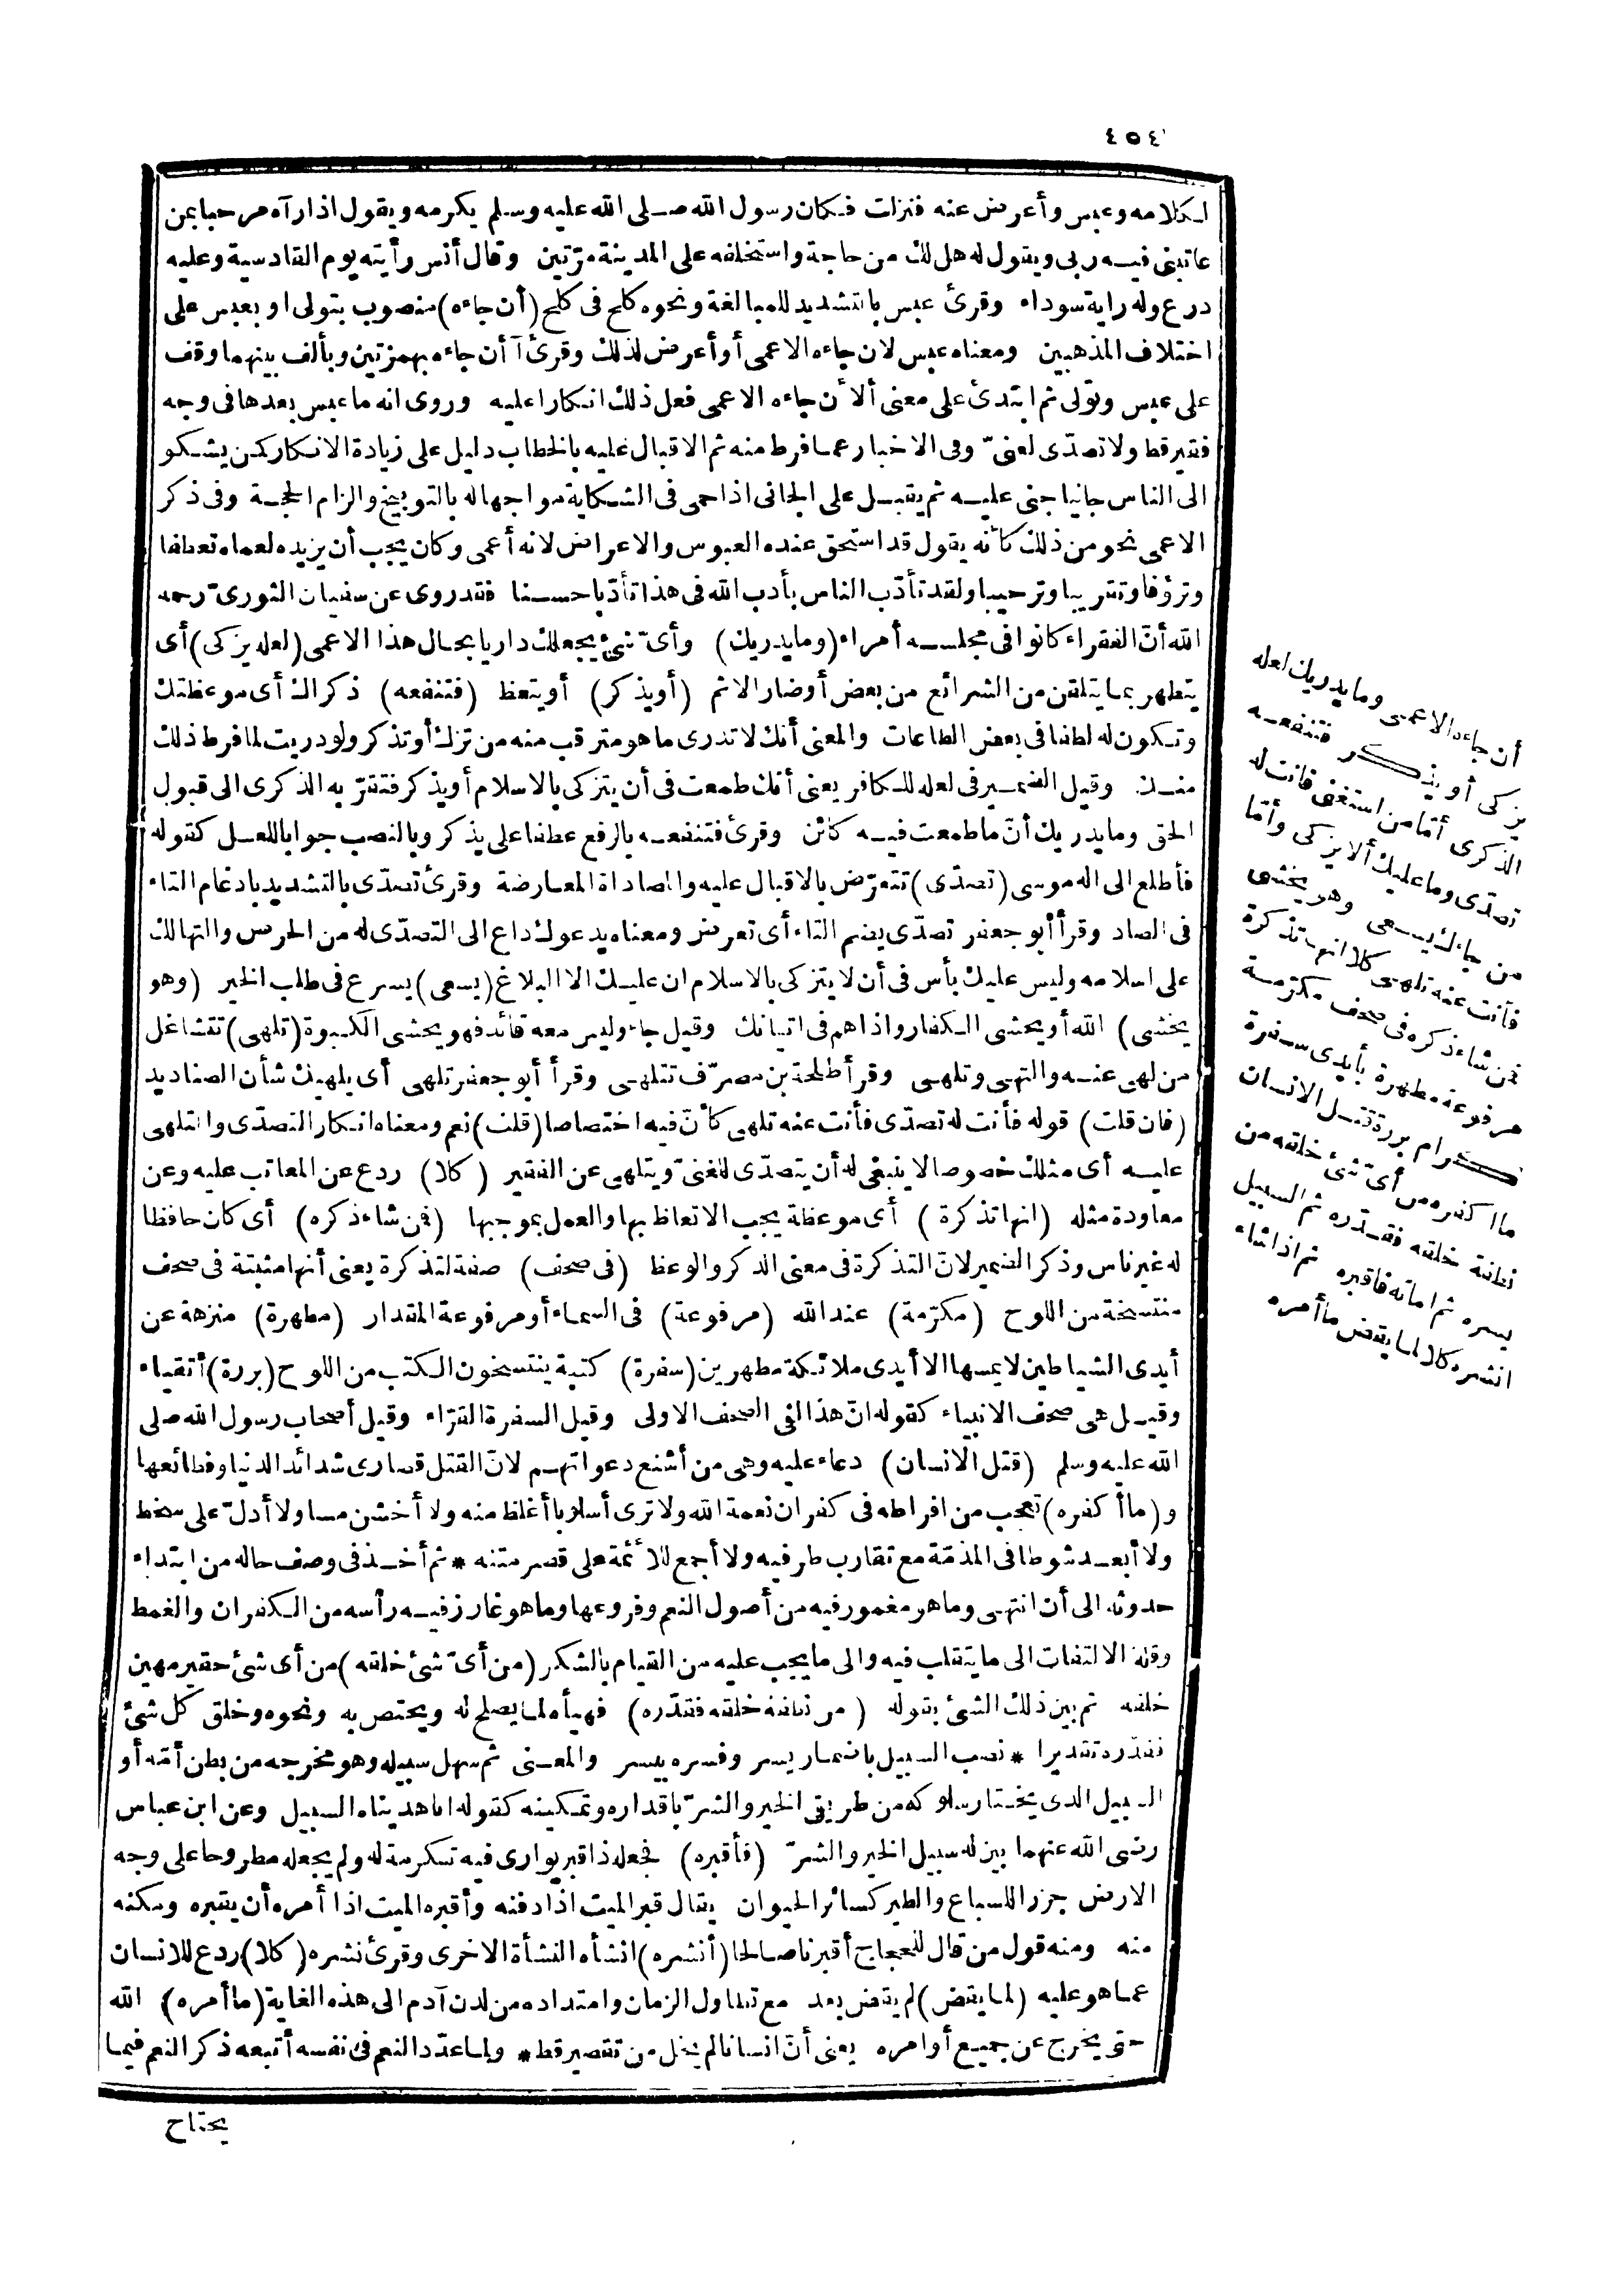 ٤٥٤
لكلامه وعبس وأعرض عنه فنزلت فكان رسول الله صلى الله عليه وسلم يكرمه ويقول اذا رآه مرحبا بمن
عاتبنى فيه ربى ويقول له هل لك من حاجة واستخلفه على المدينة مرّتين وقال أنس رأيته يوم القادسية وعليه
درع وله راية سوداء وقرئ عبس بالتشديد للمبالغة ونحوه كلح فى كلح (أن جاءه) منصوب بتولى او بعبس على
اختلاف المذهبين ومعناه عبس لان جاءه الاعمى أو أعرض لذلك وقرئ آ أن جاءه بهمزتين وبألف بينهما وقف
على عبس وتولى ثم ابتدئ على معنى ألأن جاءه الاعمى فعل ذلك انكارا عليه وروى انه ما عبس بعدها فى وجه
فقير قط ولا تصدّى لغنىّ وفى الاخبار عما فرط منه ثم الاقبال عليه بالخطاب دليل على زيادة الانكار كمن يشكو
الى الناس جانيا جنى عليه ثم يقبل على الجانى اذا حمى فى الشكاية مواجها له بالتوبيخ والزام الحجة وفى ذكر
الاعمى نحو من ذلك كأنه يقول قد استحق عنده العبوس والاعراض لانه أعمى وكان يجب أن يزيده لعماه تعطفا
وترؤفا وتقريبا وترحيبا ولقد تأدّب الناس بأدب الله فى هذا تأدّبا حسنا فقد روى عن سفيان الثورىّ رحمه
الله أنّ الفقراء كانوا فى مجلسه أمراء (وما يدريك) وأىّ شئ يجعلك داريا بحال هذا الاعمى (لعله يزكى) أى
يتطهر بما يتلقن من الشرائع من بعض أوضار الاثم (أو يذكر) أو يتعظ (فتنفعه) ذكراك أى موعظتك
وتكون له لطفا فى بعض الطاعات والمعنى أنك لا تدرى ما هو مترقب منه من تزك أو تذكر ولو دريت لما فرط ذلك
منك وقيل الضمير فى لعله للكافر يعنى أنك طمعت فى أن يتزكى بالاسلام أو يذكر فتقرّبه الذكرى الى قبول
الحق وما يدريك أنّ ما طمعت فيه كائن وقرئ فتنفعه بالرفع عطفا على يذكر وبالنصب جوابا للعل كقوله
فأطلع الى اله موسى (تصدّى) تتعرّض بالاقبال عليه والمصاداة المعارضة وقرئ تصدّى بالتشديد بادغام التاء
فى الصاد وقرأ أبو جعفر تصدّى بضم التاء أى تعرض ومعناه يدعوك داع الى التصدّى له من الحرص والتهالك
على اسلامه وليس عليك بأس فى أن لا يتزكى بالاسلام ان عليك الا البلاغ (يسعى) يسرع فى طلب الخير (وهو
يخشى) الله أو يخشى الكفار واذاهم فى اتيانك وقيل جاء وليس معه قائد فهو يخشى الكبوة (تلهى) تتشاغل
من لهى عنه والتهى وتلهى وقرأ طلحة بن مصرّف تتلهى وقرأ أبو جعفر تلهى أى يلهيك شأن الصناديد
(فان قلت) قوله فأنت له تصدّى فأنت عنه تلهى كأنّ فيه اختصاصا (قلت) نعم ومعناه انكار التصدّى والتلهى
عليه أى مثلك خصوصا لا ينبغى له أن يتصدّى للغنىّ ويتلهى عن الفقير (كلا) ردع عن المعاتب عليه وعن
معاودة مثله (انها تذكرة) أى موعظة يجب الاتعاظ بها والعمل بموجبها (فمن شاء ذكره) أى كان حافظا
له غير ناس وذكر الضمير لانّ التذكرة فى معنى الذكر والوعظ (فى صحف) صفة لتذكرة يعنى أنها مثبتة فى صحف
منتسخة من اللوح (مكرّمة) عند الله (مرفوعة) فى السماء أو مرفوعة المقدار (مطهرة) منزهة عن
أيدى الشياطين لا يمسها الا أيدى ملائكة مطهرين (سفرة) كتبة ينتسخون الكتب من اللوح (بررة) أتقياء
وقيل هى صحف الانبياء كقوله انّ هذا لفى الصحف الاولى وقيل السفرة القرّاء وقيل أصحاب رسول الله صلى
الله عليه وسلم (قتل الانسان) دعاء عليه وهى من أشنع دعواتهم لانّ القتل قصارى شدائد الدنيا وفظائعها
و (ما أكفره) تعجب من افراطه فى كفران نعمة الله ولا ترى أسلوبا أغلظ منه ولا أخشن مسا ولا أدلّ على سخط
ولا أبعد شوطا فى المذمّة مع تقارب طرفيه ولا أجمع للأئمة على قصر متنه * ثم أخذ فى وصف حاله من ابتداء
حدوثه الى أن انتهى وما هو مغمور فيه من أصول النعم وفروعها وما هو غارز فيه رأسه من الكفران والغمط
وقلة الالتفات الى ما يتقلب فيه والى ما يجب عليه من القيام بالشكر (من أىّ شئ خلقه) من أى شئ حقير مهين
خلقه ثم بين ذلك الشئ بقوله (من نطفة خلقه فقدّره) فهيأه لما يصلح له ويختص به ونحوه وخلق كل شئ
فقدّره تقديرا * نصب السبيل باضمار يسر وفسره بيسر والمعنى ثم سهل سبيله وهو مخرجه من بطن أمّه أو
السبيل الذى يختار سلوكه من طريقى الخير والشرّ باقداره وتمكينه كقوله انا هديناه السبيل وعن ابن عباس
رضى الله عنهما بين له سبيل الخير والشرّ (فأقبره) فجعله ذا قبر يوارى فيه تكرمة له ولم يجعله مطروحا على وجه
الارض جزرا للسباع والطير كسائر الحيوان يقال قبر الميت اذا دفنه وأقبره الميت اذا أمره أن يقبره ومكنه
منه ومنه قول من قال للحجاج أقبرنا صالحا (أنشره) انشأه النشأة الاخرى وقرئ نشره (كلا) ردع للانسان
عما هو عليه (لما يقض) لم يقض بعد مع تطاول الزمان وامتداده من لدن آدم الى هذه الغاية (ما أمره) الله
حتى يخرج عن جميع أوامره يعنى أنّ انسانا لم يخل من تقصير قط * ولما عدّد النعم فى نفسه أتبعه ذكر النعم فيما
يحتاح
أن جاءه الاعمى وما يدريك لعله
يزكى أو يذكر فتنفعه
الذكرى أمّا من استغنى فانت له
تصدّى وما عليك ألا يزكى وأمّا
من جاءك يسعى وهو يخشى
فأنت عنه تلهى كلا انها تذكرة
فمن شاء ذكره فى صحف مكرّمة
مرفوعة مطهرة بأيدى سفرة
كرام بررة قتل الانسان
ما اكفره من أىّ شئ خلقه من
نطفة خلقه فقدّره ثم السبيل
يسره ثم اماته فاقبره ثم اذا شاء
انشره كلا لما يقض ما أمره